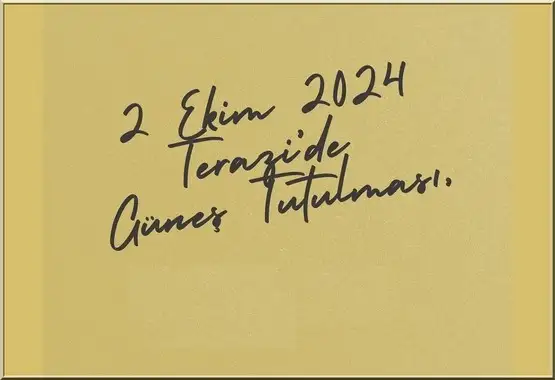 2 Ekim 2024
Terazi'de
Güneş Tutulması.